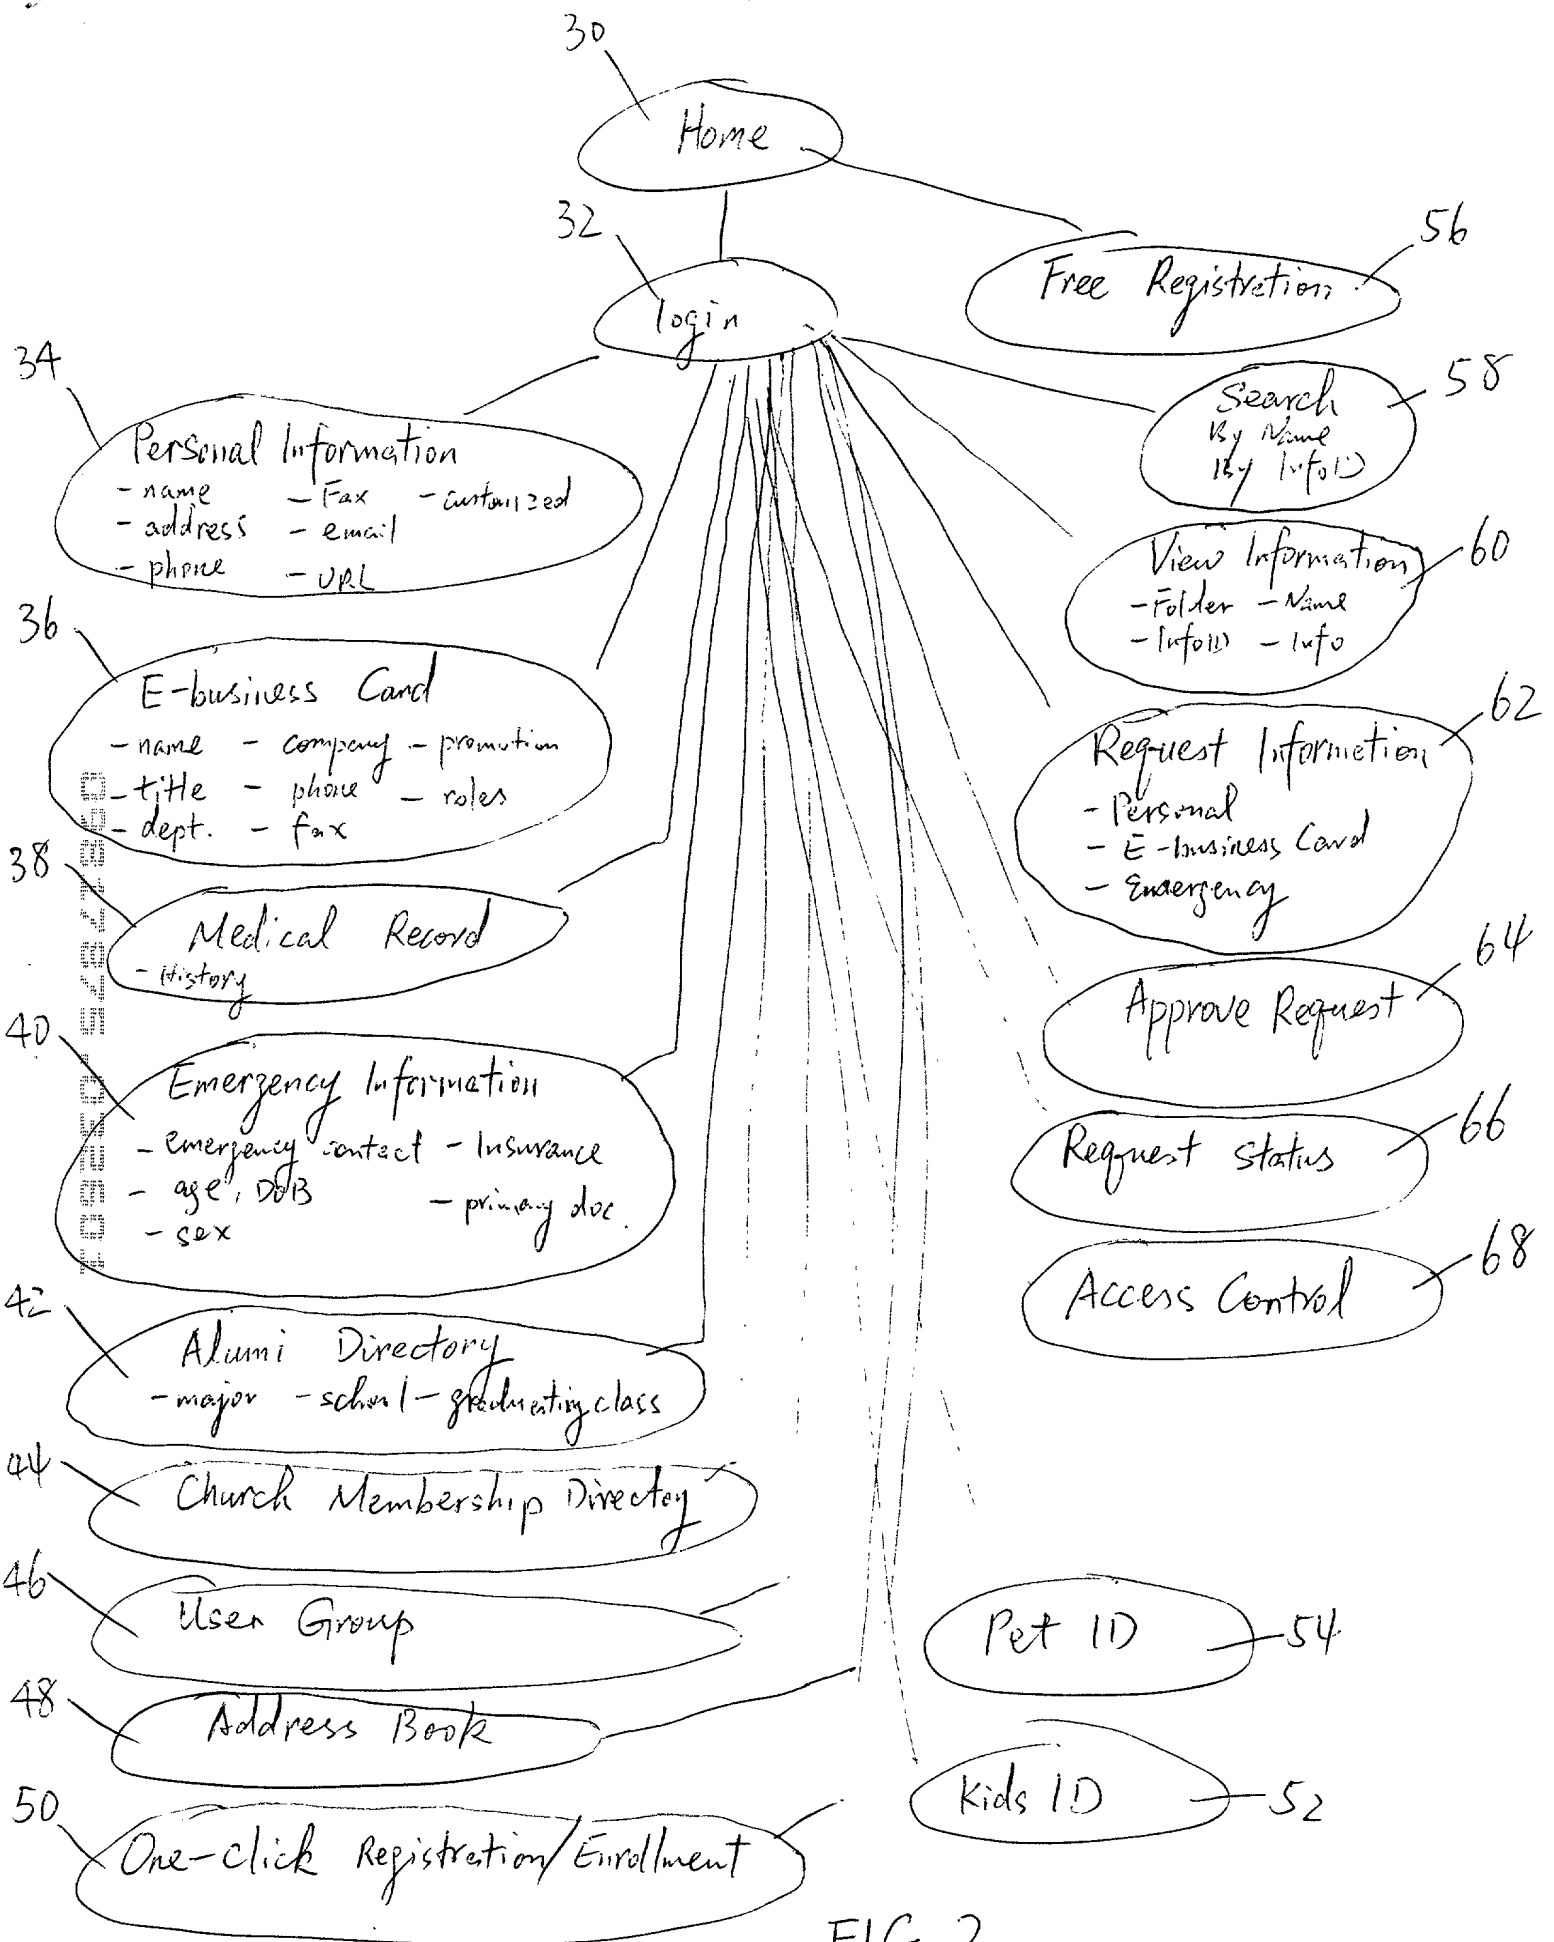 30
Home
32
login
56
Free Registretion
34
Personal Information
- name - Fax - customized
- address - email
- phone - URL
58
Search
By Name
By InfoID
60
View Information
- Folder - Name
- InfoID - Info
36
E-business Card
- name - company - promotion
- title - phone - roles
- dept. - fax
62
Request Informetion
- Personal
- E-business Card
- Emergency
38
Medical Record
- History
64
Approve Request
40
Emergency Information
- emergency contact - Insurance
- age, DOB - primary doc.
- sex
66
Request status
68
Access Control
42
Alumi Directory
- major - school - graduating class
44
Church Membership Directoy
46
User Group
54
Pet ID
48
Address Book
52
Kids ID
50
One-click Registretion/Enrollment
FIG 2